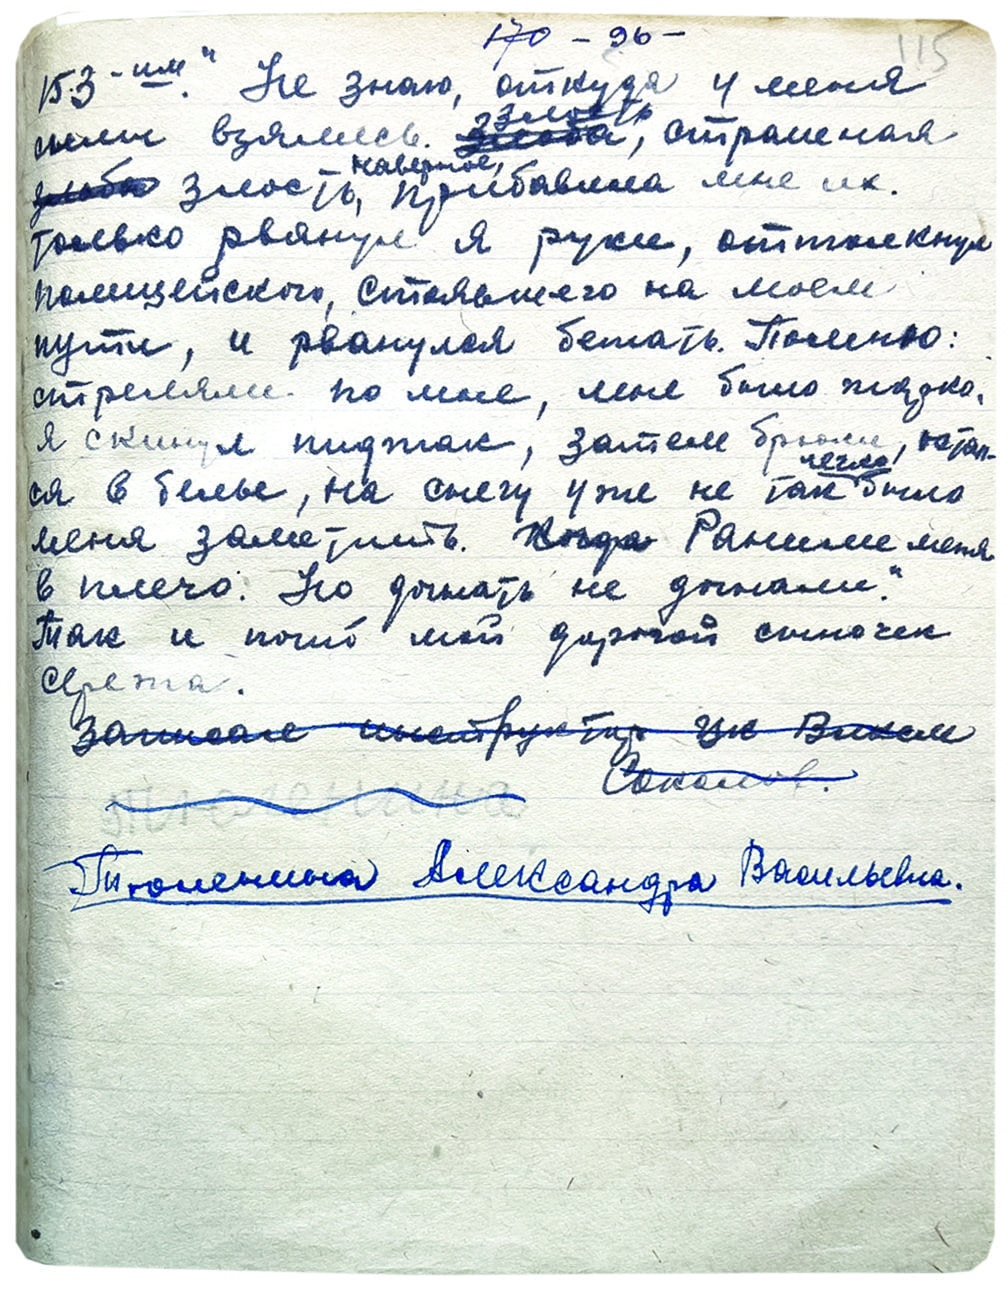 170 - 96 -
115
153 - им". Не знаю, откуда у меня
силы взялись. злоба, злость, страшная
злоба злость, наверное, прибавила мне их.
только рвянул я руки, оттолкнул
полицейского, стоявшего на моем
пути, и рванулся бежать. Помню:
стреляли по мне, мне было жарко.
Я скинул пиджак, затем брюки, остал-
ся в белье, на снегу уже не так легко было
меня заметить. Когда Ранили меня
в плечо. Но догнать не догнали."
Так и погиб мой дорогой сыночек
Сережа.
Записал инструктор ЦК Влксм
Соколов.
Тюленина
Тюленина Александра Васильевна.